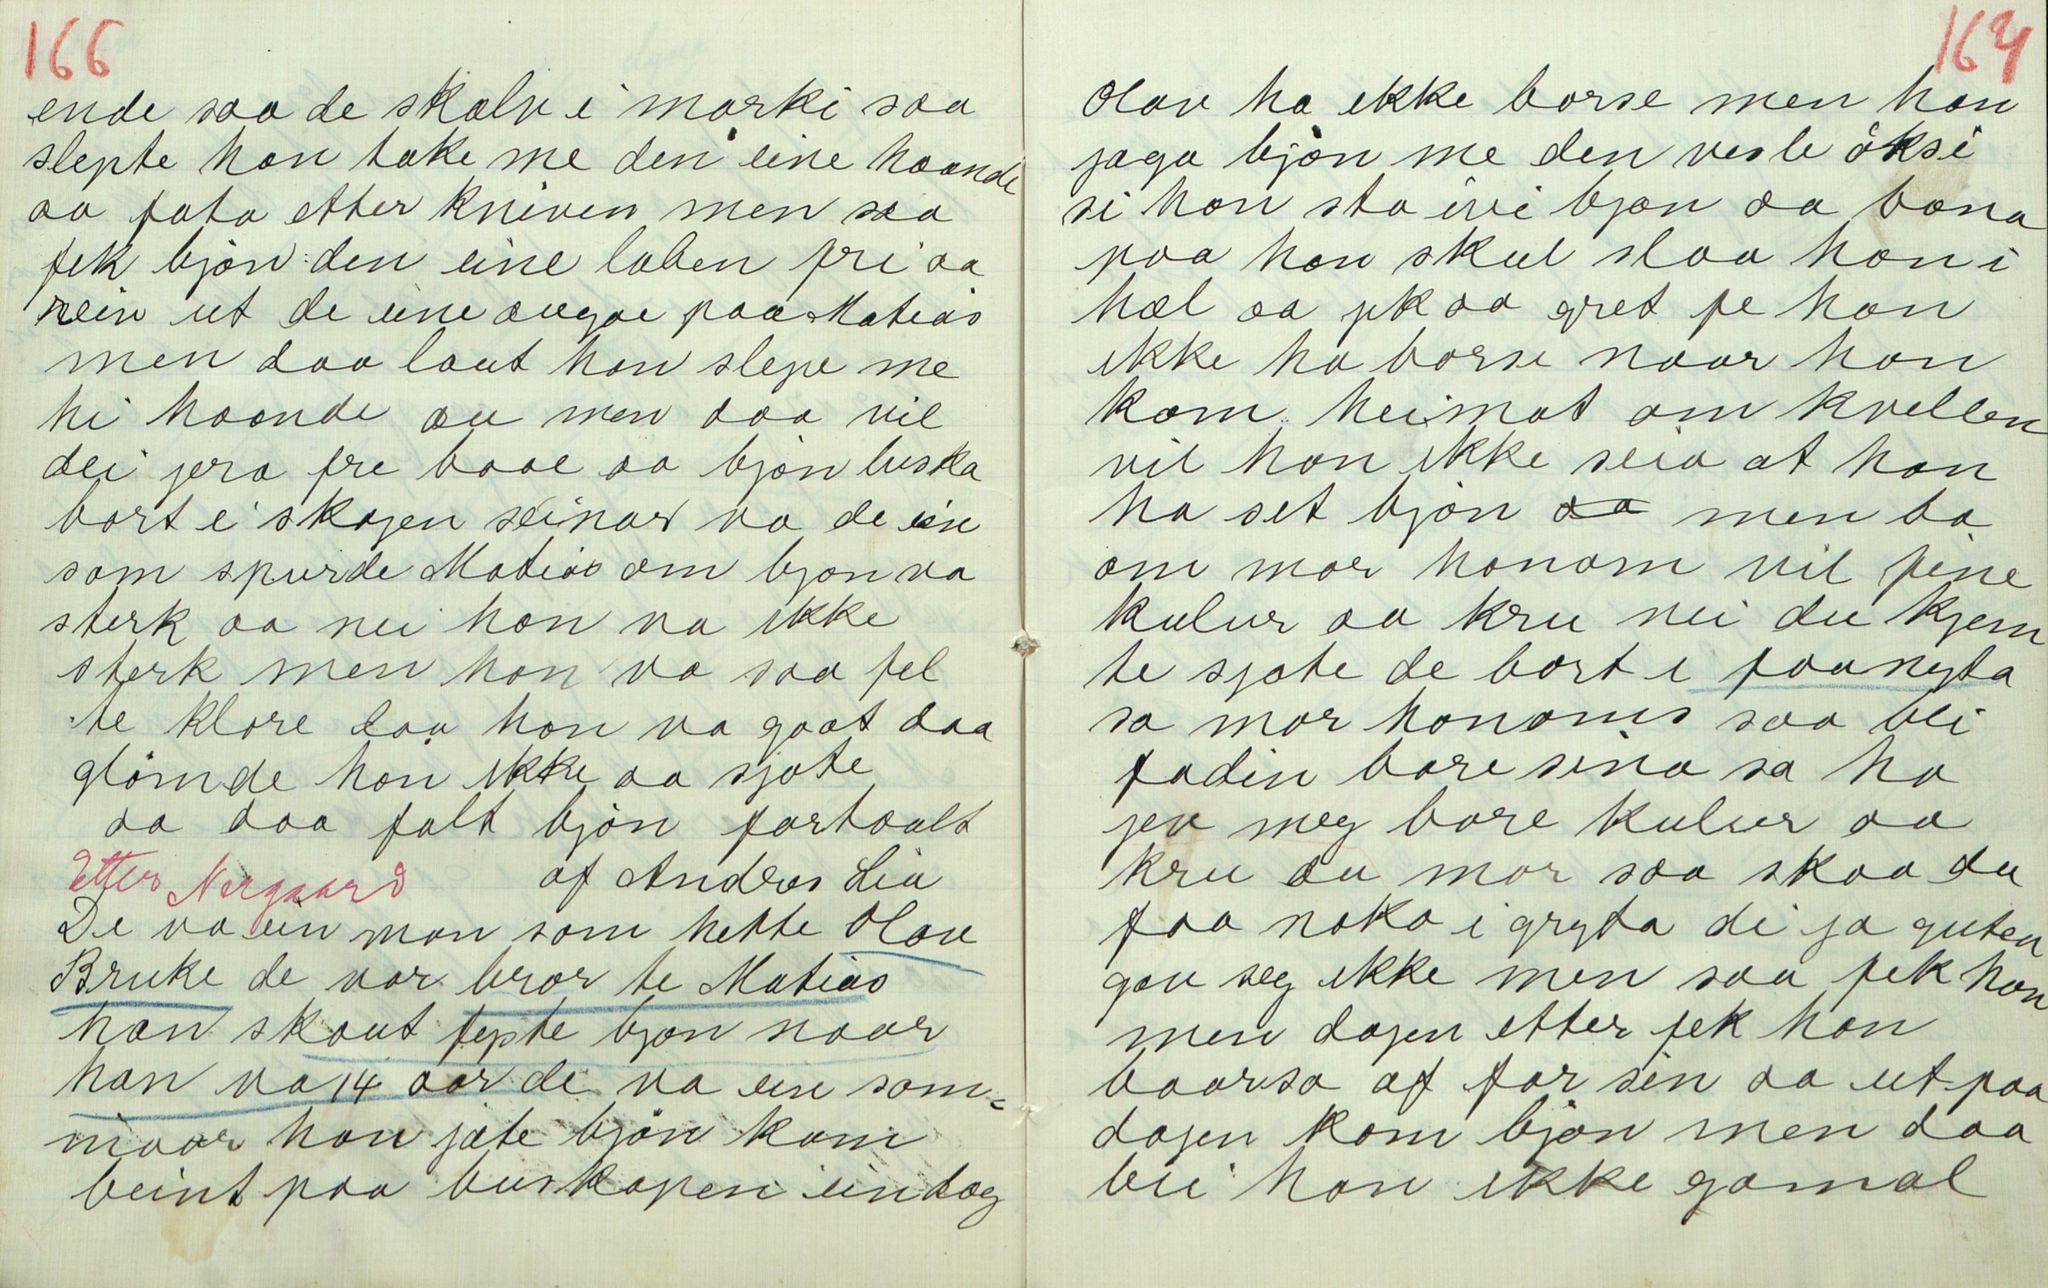 166
ende saa de skalv i marki saa
slepte han take me den eine haande
aa fata etter kniven men saa
fek bjøn den eine laben fri aa
reiv ut de eine augae paa Matias
men daa laut han slepe me
hi haande au men daa vil
dei jera fre baae aa bjøn luska
bort i skogen seinar va de ein
som spurde Matias om bjøn va
sterk aa nei han va ikke
sterk men han va saa fel
te klore daa han va gaat daa
glømde han ikke aa sjøte
aa daa falt bjøn fortoalt
af Andres Lia
Etter Nergaard
De va ein man som hette Olav
Bruke de var bror te Matias
han skaut fyste bjøn naar
han va 14 aar de va ein som=
maar han jæte bjøn kom
beint paa buskapen ein dag
167
Olav ha ikke børse men han
jaga bjøn me den vesle øksi
si han sto ivi bjøn aa bana
paa han skul slaa han i
hæl aa jik aa gret fe han
ikke ha børse naar han
kom heimat om kvellen
vil han ikke seia at han
ha set bjøn men ba
om mor honom vil fine
kulur aa kru nei du kjem
te sjøte de bort i faanyta
sa mor honoms saa bli
fadin bare sina sa ha
jev meg bare kulur aa
kru du mor saa skaa du
faa noko i gryta di ja guten
gav seg ikke men saa fek han
men dagen etter fek han
baarsa af far sin aa ut paa
dagen kom bjøn men daa
blei han ikke gamal